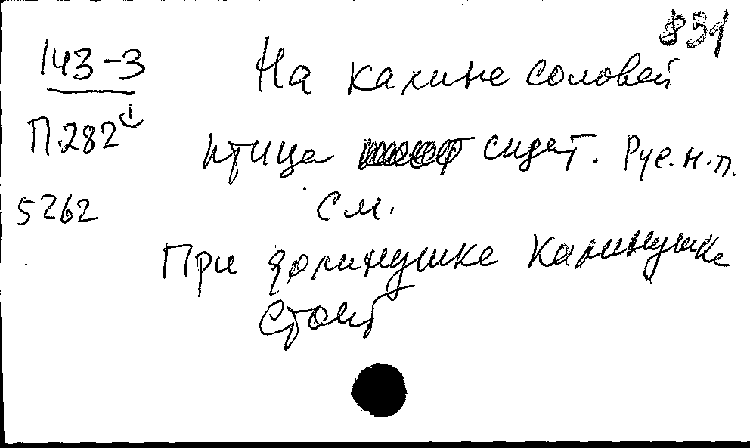 831
143-3
На калине соловей
П.282
птица сидит. Рус.н.п.
5262
См.
При долинушке калинушка
стоит